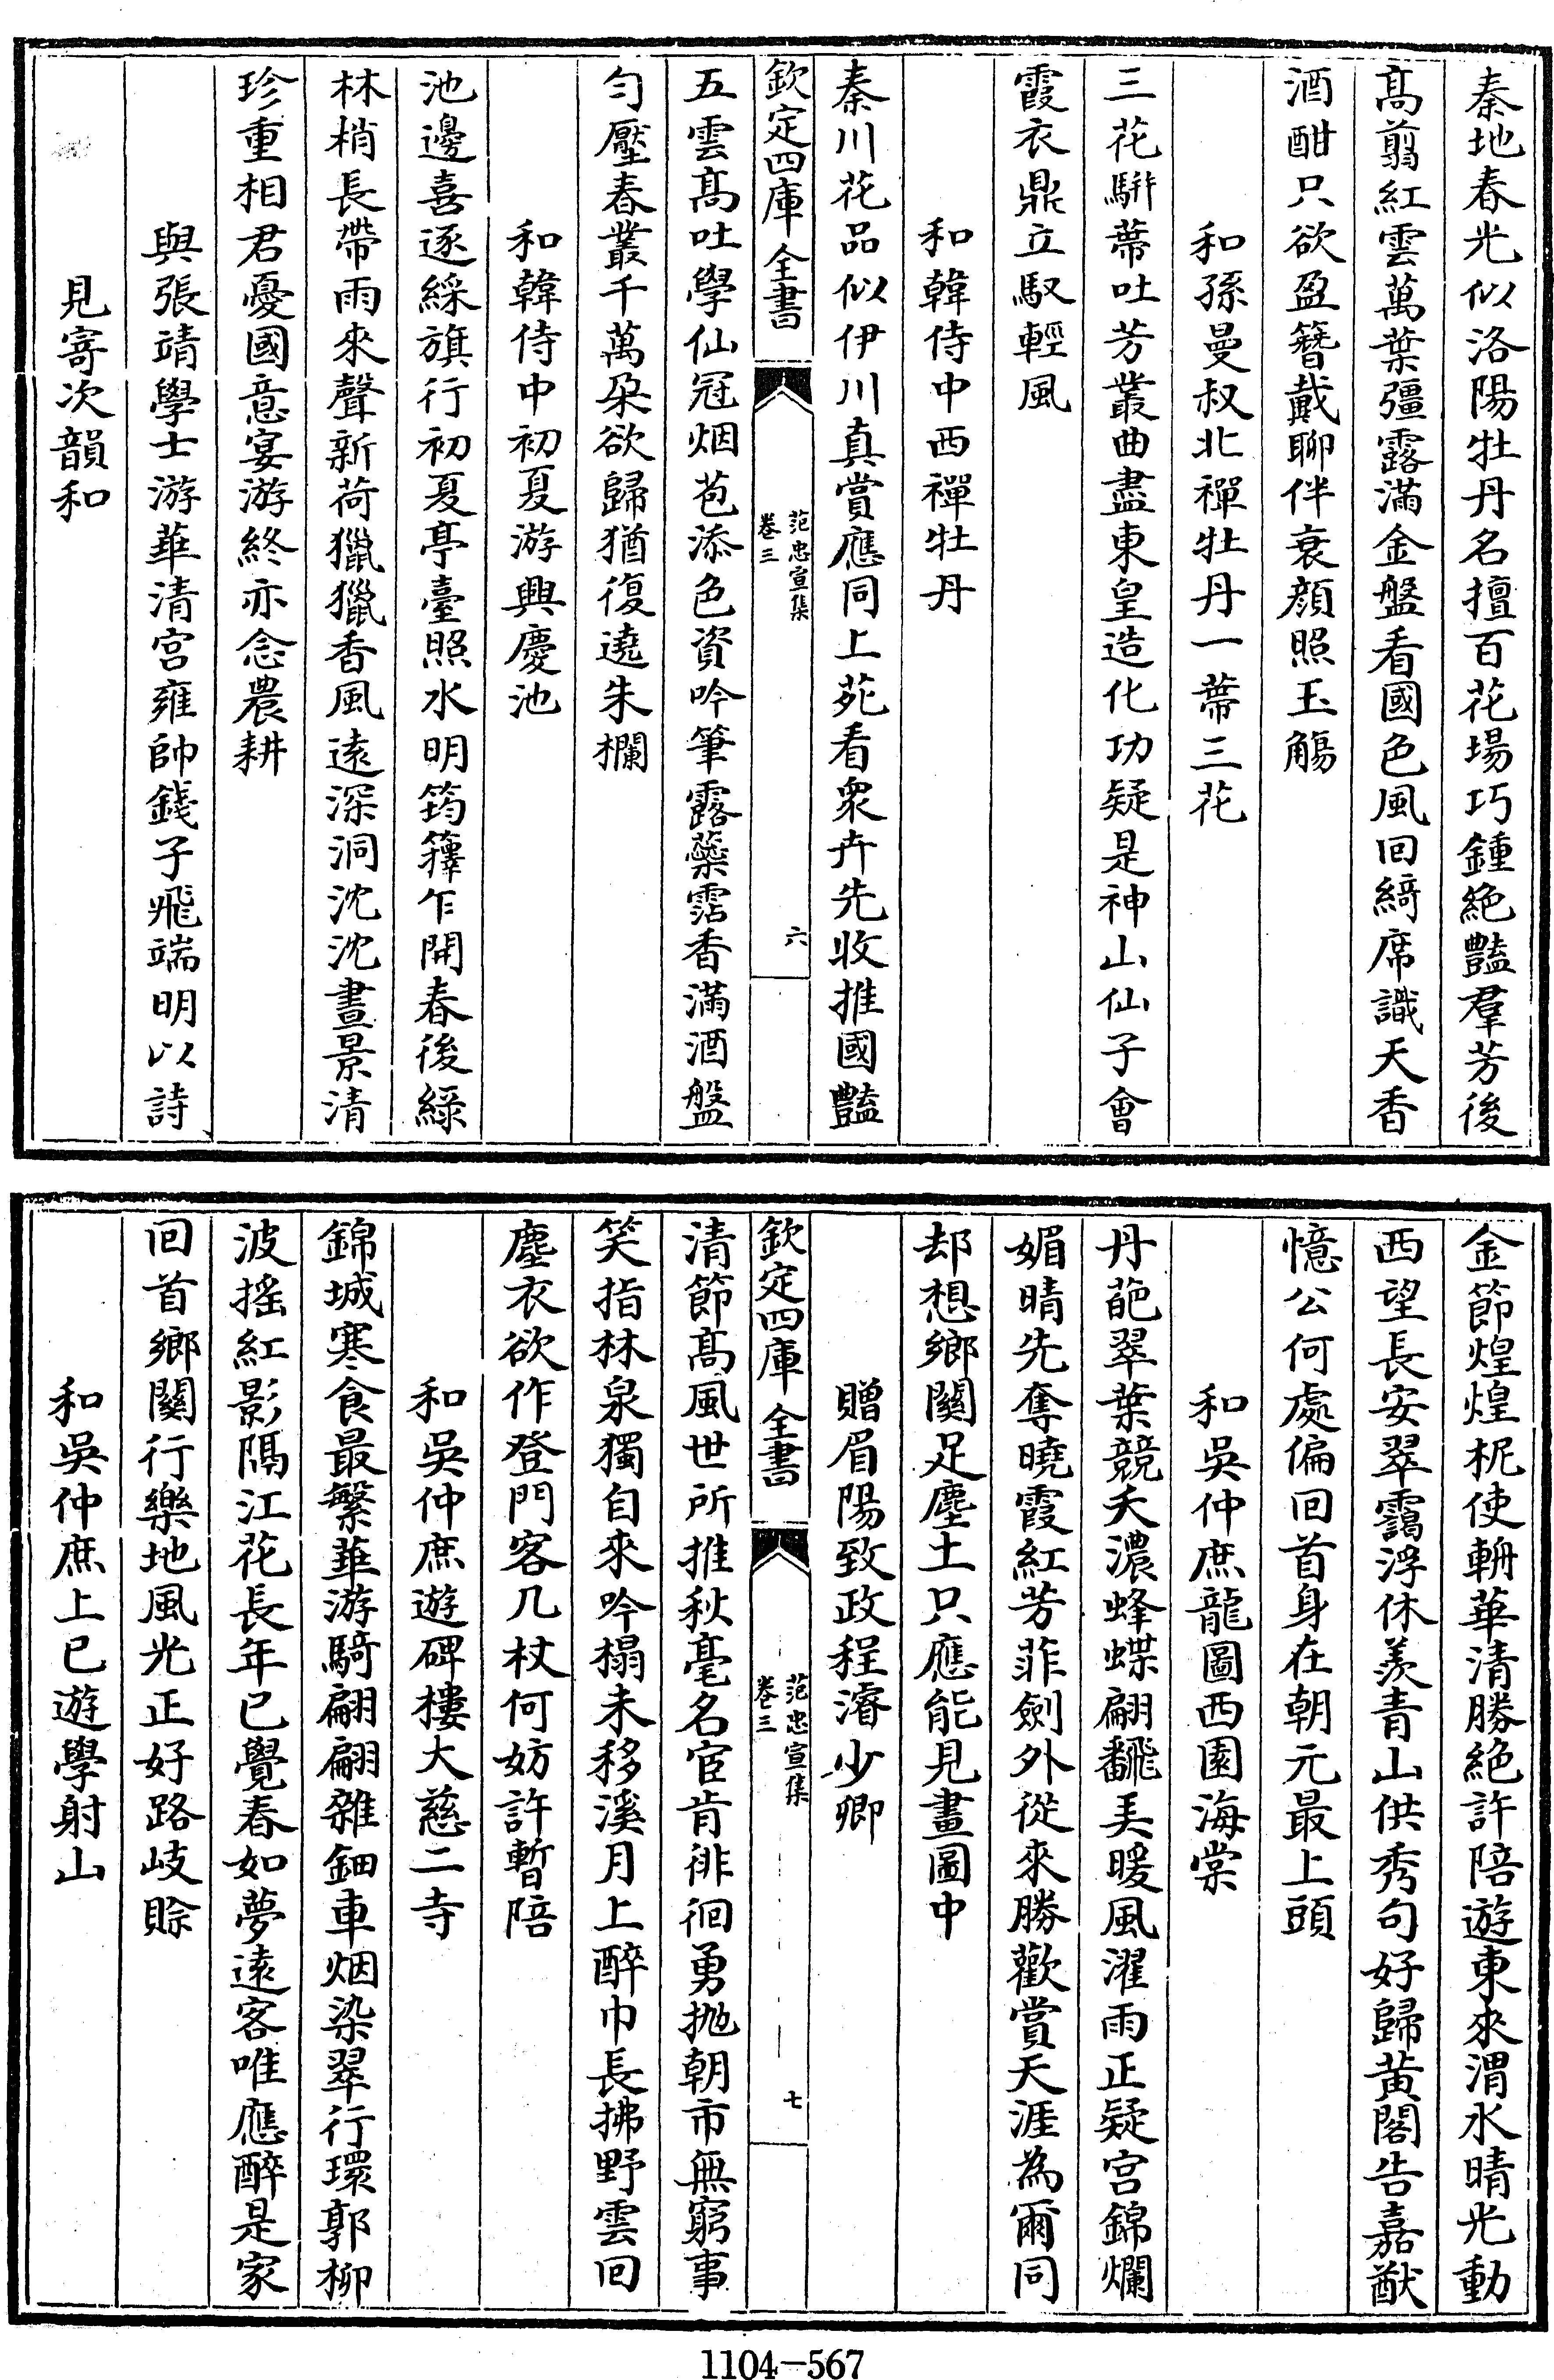 秦地春光似洛陽牡丹名擅百花場巧鍾絶豔羣芳後
髙翦紅雲萬葉彊露滿金盤看國色風回綺席識天香
酒酣只欲盈簪戴聊伴衰顔照玉觴
和孫曼叔北禪牡丹一蔕三花
三花駢蔕吐芳叢曲盡東皇造化功疑是神山仙子會
霞衣鼎立馭輕風
和韓侍中西禪牡丹
秦川花品似伊川真賞應同上苑看衆卉先收推國豔
欽定四庫全書
范忠宣集
卷三
六
五雲髙吐學仙冠烟苞添色資吟筆露蘂霑香滿酒盤
匀壓春叢千萬朶欲歸猶復遶朱欄
和韓侍中初夏游興慶池
池邊喜逐綵旗行初夏亭臺照水明筠籜乍開春後緑
林梢長帶雨來聲新荷獵獵香風逺深洞沈沈晝景清
珍重相君憂國意宴游終亦念農耕
與張靖學士游華清宫雍帥錢子飛端明以詩
見寄次韻和
金節煌煌柅使輈華清勝絶許陪遊東來渭水晴光動
西望長安翠靄浮休羨青山供秀句好歸黄閣告嘉猷
憶公何處偏回首身在朝元最上頭
和吳仲庶龍圖西園海棠
丹葩翠葉競夭濃蜂蝶翩翻美暖風濯雨正疑宫錦爛
媚晴先奪曉霞紅芳菲劍外從來勝歡賞天涯為爾同
却想鄉關足塵土只應能見畫圖中
贈眉陽致政程濬少卿
欽定四庫全書
范忠宣集
卷三
七
清節髙風世所推秋毫名宦肯徘徊勇抛朝市無窮事
笑指林泉獨自來吟榻未移溪月上醉巾長拂野雲回
塵衣欲作登門客几杖何妨許暫陪
和吳仲庶遊碑樓大慈二寺
錦城寒食最繁華游騎翩翩雜鈿車烟染翠行環郭柳
波揺紅影隔江花長年已覺春如夢逺客唯應醉是家
回首鄉關行樂地風光正好路歧賒
和吳仲庶上巳遊學射山
1104-567